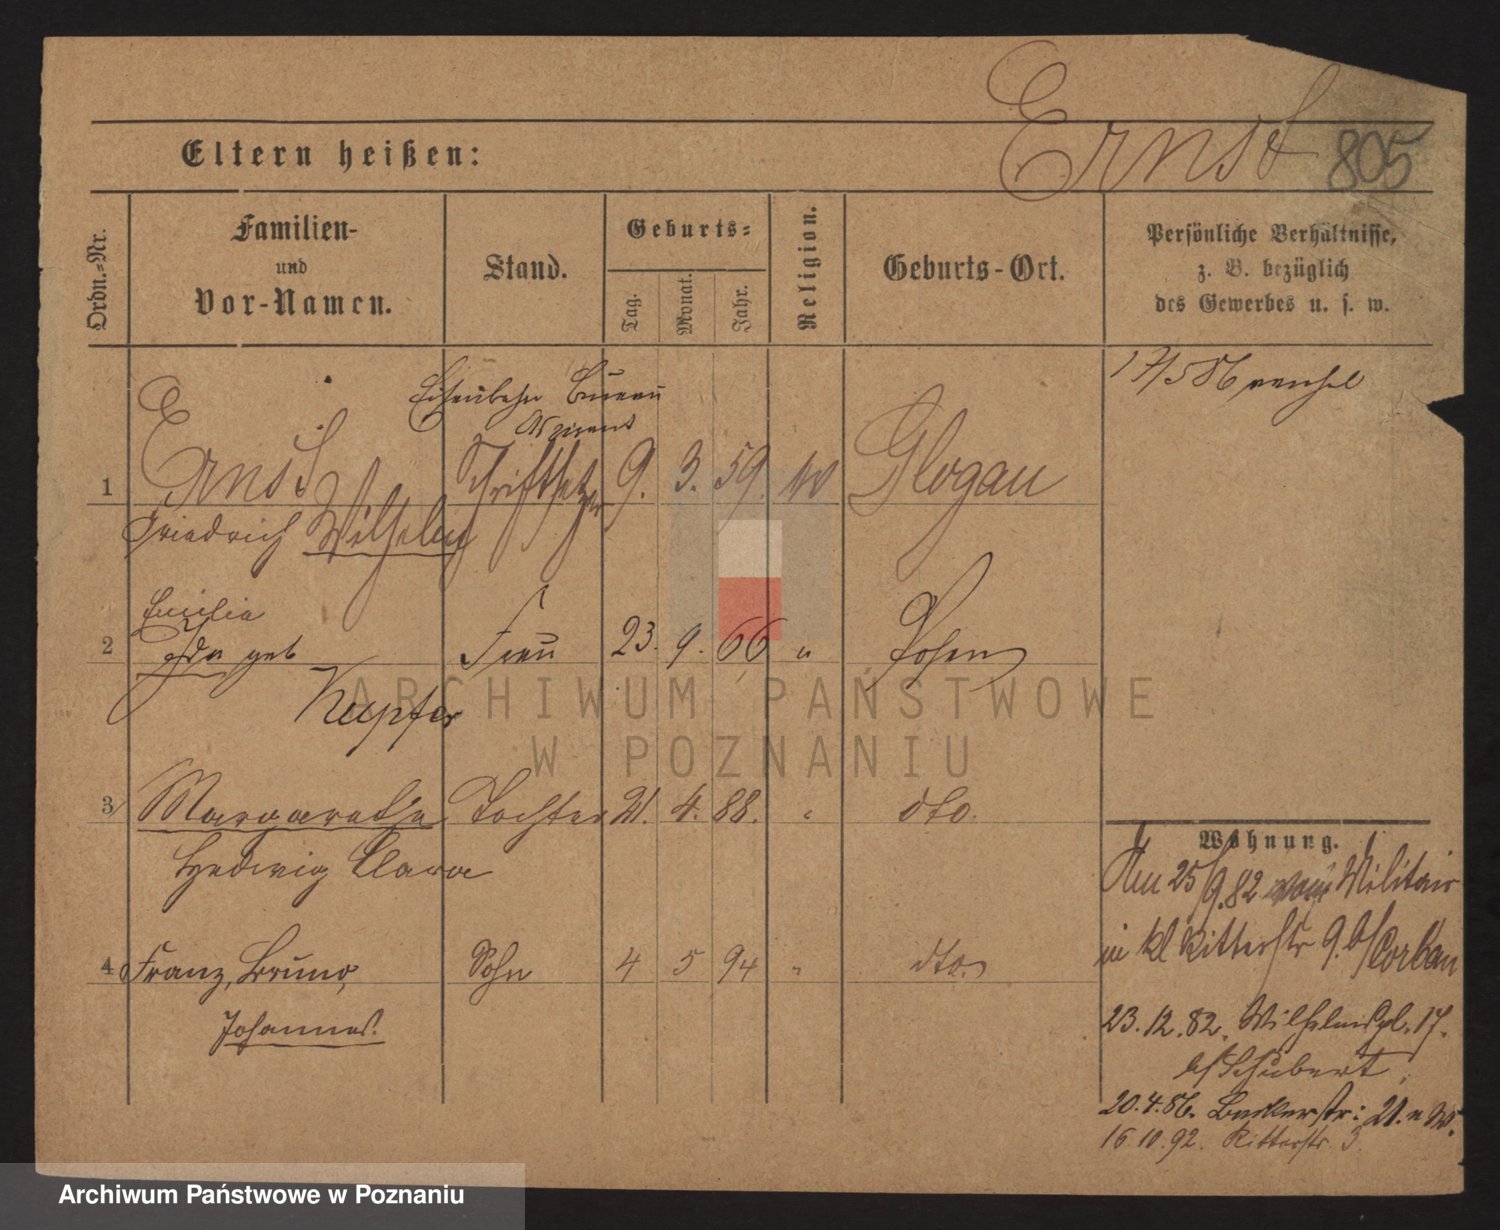 Ernst 805
Eltern heißen:
Ordn.-Nr.
Familien-
und
Vor-Namen.
Stand.
Geburts-
Tag.
Monat.
Jahr.
Religion.
Geburts-Ort.
Persönliche Verhältnisse,
z. B. bezüglich
des Gewerbes u. s. w.
17/5 86
Eisenbahn Bureau
1 Ernst Schriftsetzer 9. 3. 59. Glogau
Friedrich Wilhelm
2 Ida geb Frau 23. 9. 66 " Posen
Kupfer
3 Margarethe Tochter 21. 4. 88. " dto.
Hedwig Clara
4 Franz, Bruno, Sohn 4 5 94 " dto.
Johannes.
Wohnung.
Am 25/9.82 vom Militair
in kl Ritterstr 9. b/Corban
23.12.82. Wilhelmspl. 17.
b/ Schubert
20.4.86. Bäckerstr: 21. n W.
16.10.92. Ritterstr. 3.
ARCHIWUM PAŃSTWOWE
W POZNANIU
Archiwum Państwowe w Poznaniu